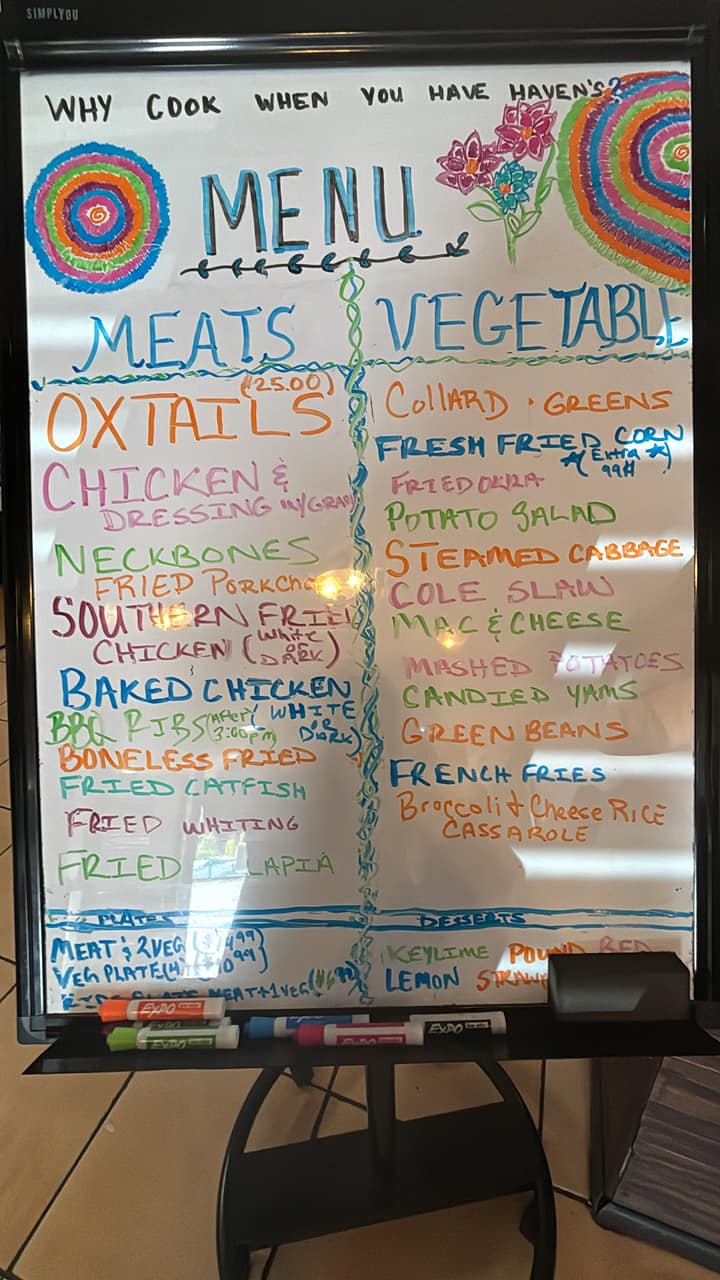 SIMPLYOU
WHY COOK WHEN YOU HAVE HAVEN'S?
MENU
MEATS
($25.00)
OXTAILS
CHICKEN &
DRESSING W/GRAVY
NECKBONES
FRIED PORKCHOP
SOUTHERN FRIED
CHICKEN (White OR DARK)
BAKED CHICKEN
(WHITE OR DARK)
BBQ RIBS (After 3:00pm)
BONELESS FRIED
FRIED CATFISH
FRIED WHITING
FRIED LAPIA
VEGETABLE
COllARD • GREENS
FRESH FRIED CORN
(Extra 99¢)
FRIED OKRA
POTATO SALAD
STEAMED CABBAGE
COLE SLAW
MAC & CHEESE
MASHED POTATOES
CANDIED YAMS
GREEN BEANS
FRENCH FRIES
Broccoli & Cheese RICE
CASSAROLE
PLATES
MEAT & 2 VEG ($14.99)
VEG PLATE (4) ($10.99)
MEAT + 1 VEG.
DESSERTS
KEYLIME POUND RED
LEMON STRAW
EXPO
EXPO
EXPO
EXPO